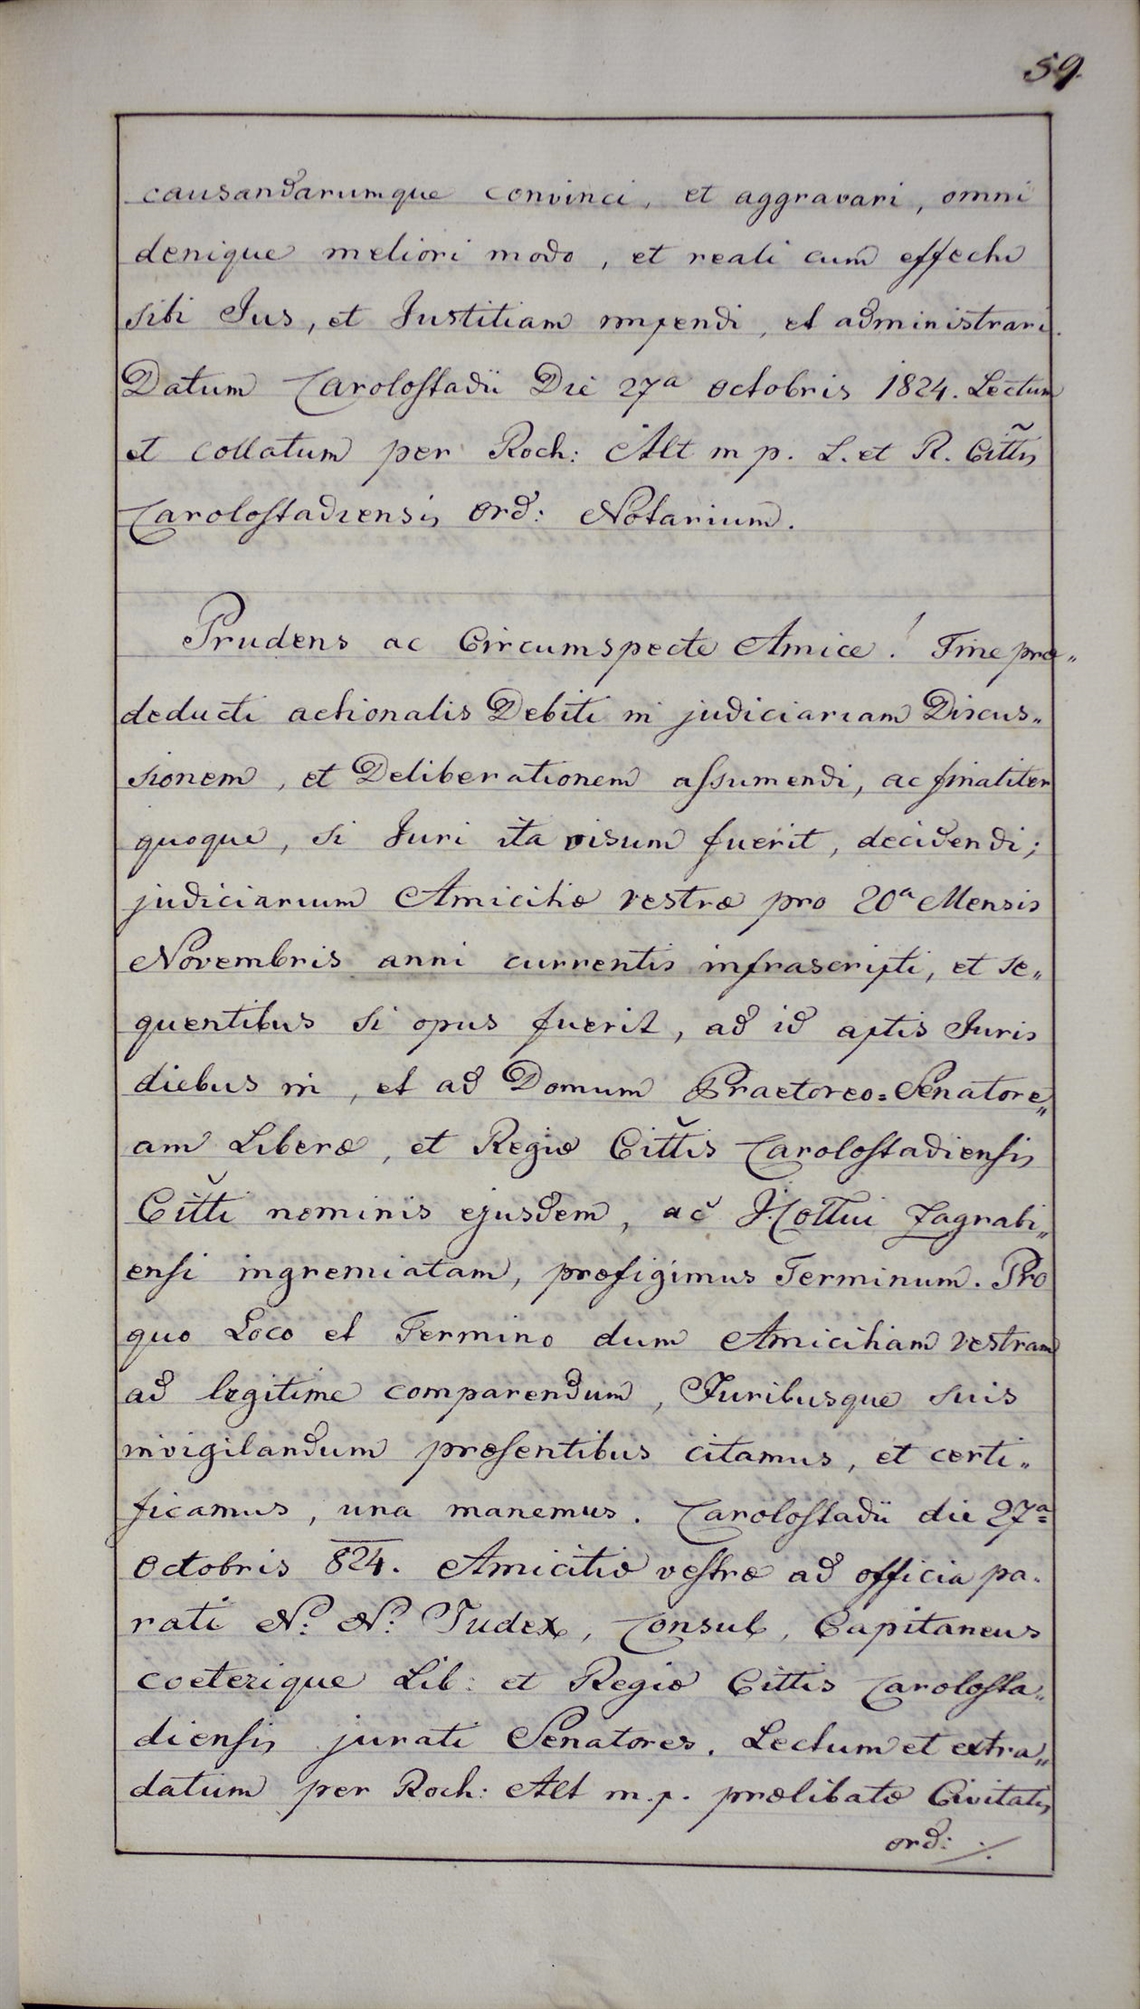 59.
causandarumque convinci, et aggravari, omni
denique meliori modo, et reali cum effectu
sibi Jus, et Justitiam impendi, et administrari.
Datum Carolostadii Die 27a octobris 1824. Lectum
et collatum per Roch: Alt m p. L. et R. Citt̃is
Carolostadiensis ord: Notarium.
Prudens ac Circumspecte Amice! Fine præ„
deducti actionalis Debiti in judiciariam Discus„
sionem, et Deliberationem assumendi, ac finaliter
quoque, si Juri ita visum fuerit, decidendi;
judiciarium Amicitiæ vestræ pro 20a Mensis
Novembris anni currentis infrascripti, et se„
quentibus si opus fuerit, ad id aptis Juris
diebus in, et ad Domum Praetoreo=Senatore„
am Liberæ, et Regiæ Citt̃is Carolostadiensis
Citt̃i nominis ejusdem, ac̃ Zagrabi„
ensi ingremiatam, præfigimus Terminum. Pro
quo Loco et Termino dum Amicitiam vestram
ad legitime comparendum, Juribusque suis
invigilandum præsentibus citamus, et certi„
ficamus, una manemus. Carolostadii die 27a
octobris 824. Amicitiæ vestræ ad officia pa„
rati N: N: Judex, Consul, Capitaneus
coeterique Lib: et Regiæ Cittis Carolosta„
diensis jurati Senatores. Lectum et extra„
datum per Roch: Alt m.p. prælibatæ Civitatis
ord: ./.